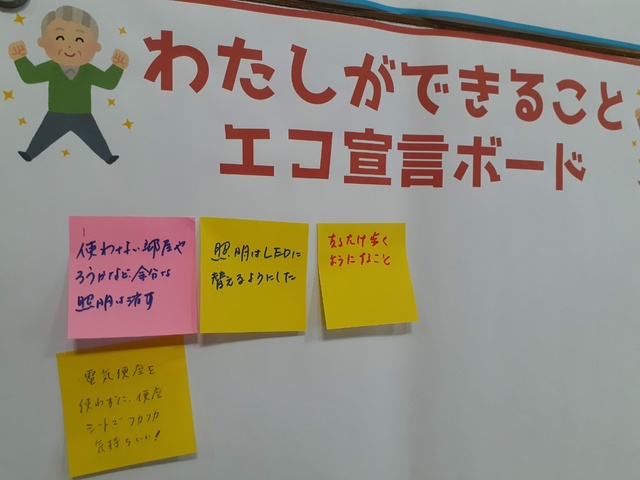 わたしができること
エコ宣言ボード
使わない部屋や
ろうかなど、余分な
照明は消す
照明はLEDに
替えるようにした
なるたけ歩く
ようにすること
電気便座を
使わずに、便座
シートでフカフカ
気持ちいい!